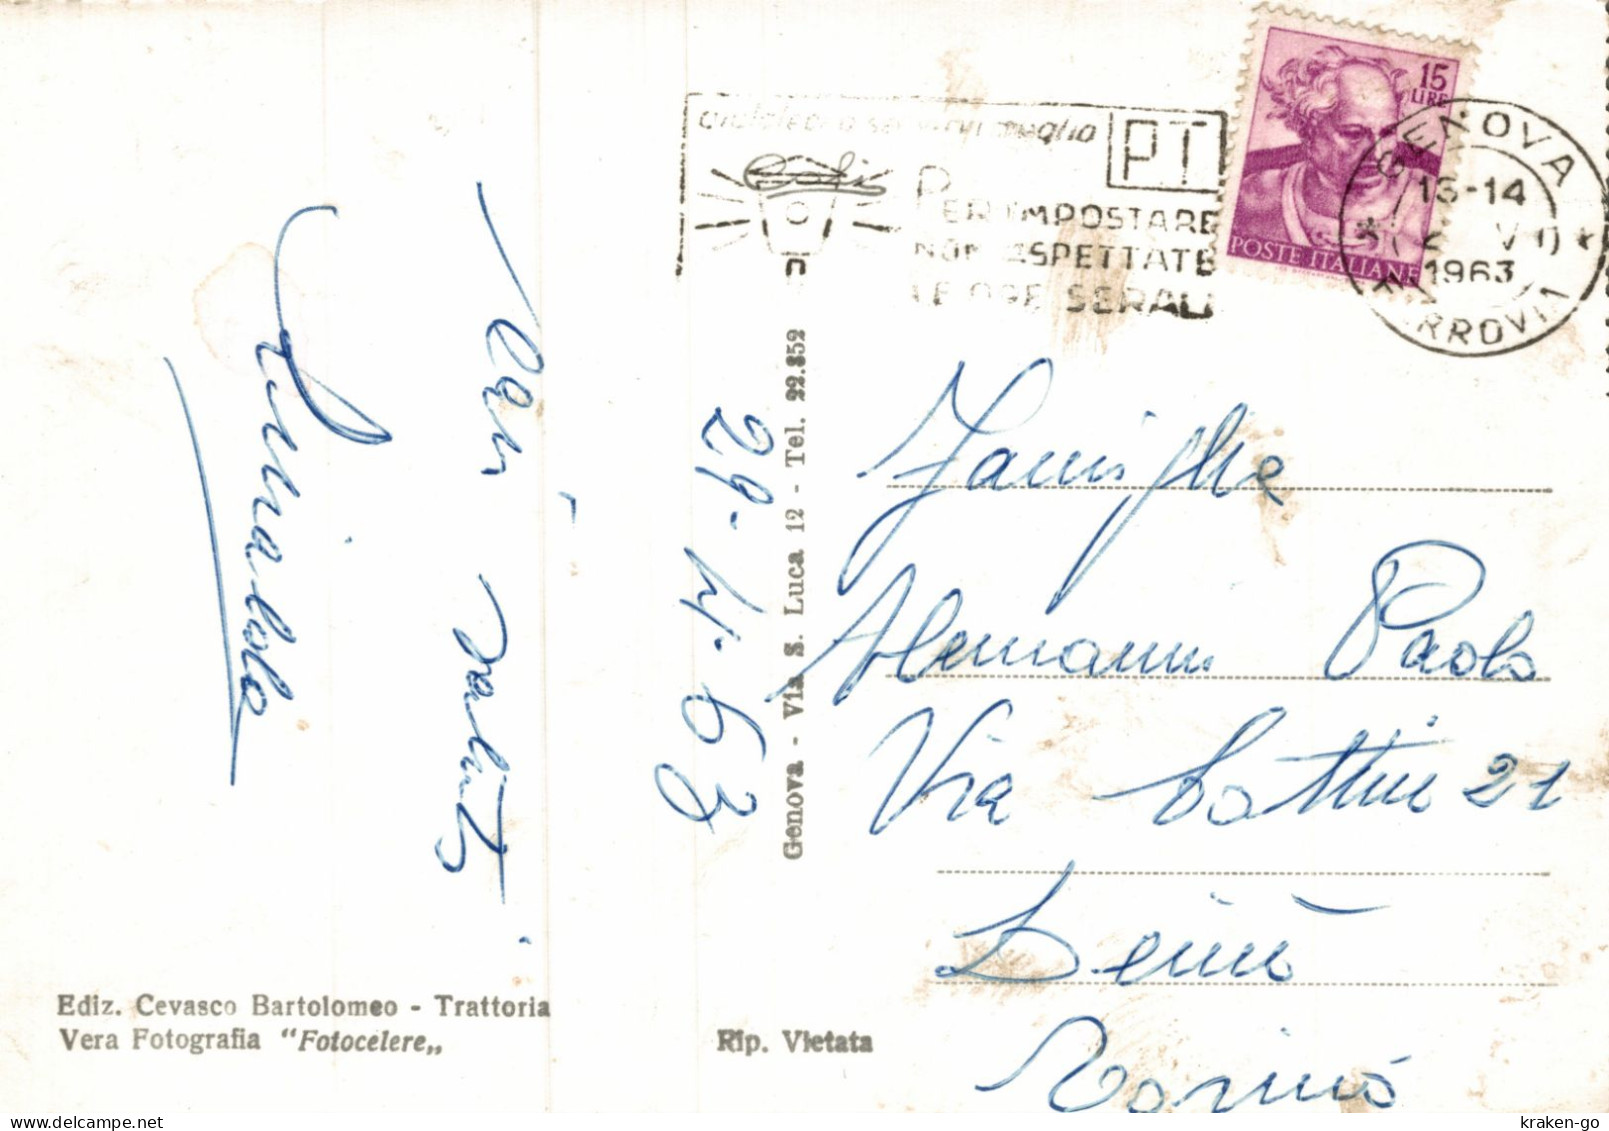 aiutateci a servirvi meglio
PT
PER IMPOSTARE
NON ASPETTATE
LE ORE SERALI
15
LIRE
POSTE ITALIANE
GENOVA
13-14
1963
FERROVIA
Cari saluti
29.4.63
Genova - Via S. Luca 12 - Tel. 22.852
Famiglia
Alemanni Paolo
Via Cottini 21
Leini
Torino
Ediz. Cevasco Bartolomeo - Trattoria
Vera Fotografia "Fotocelere„
Rip. Vietata
kraken-go